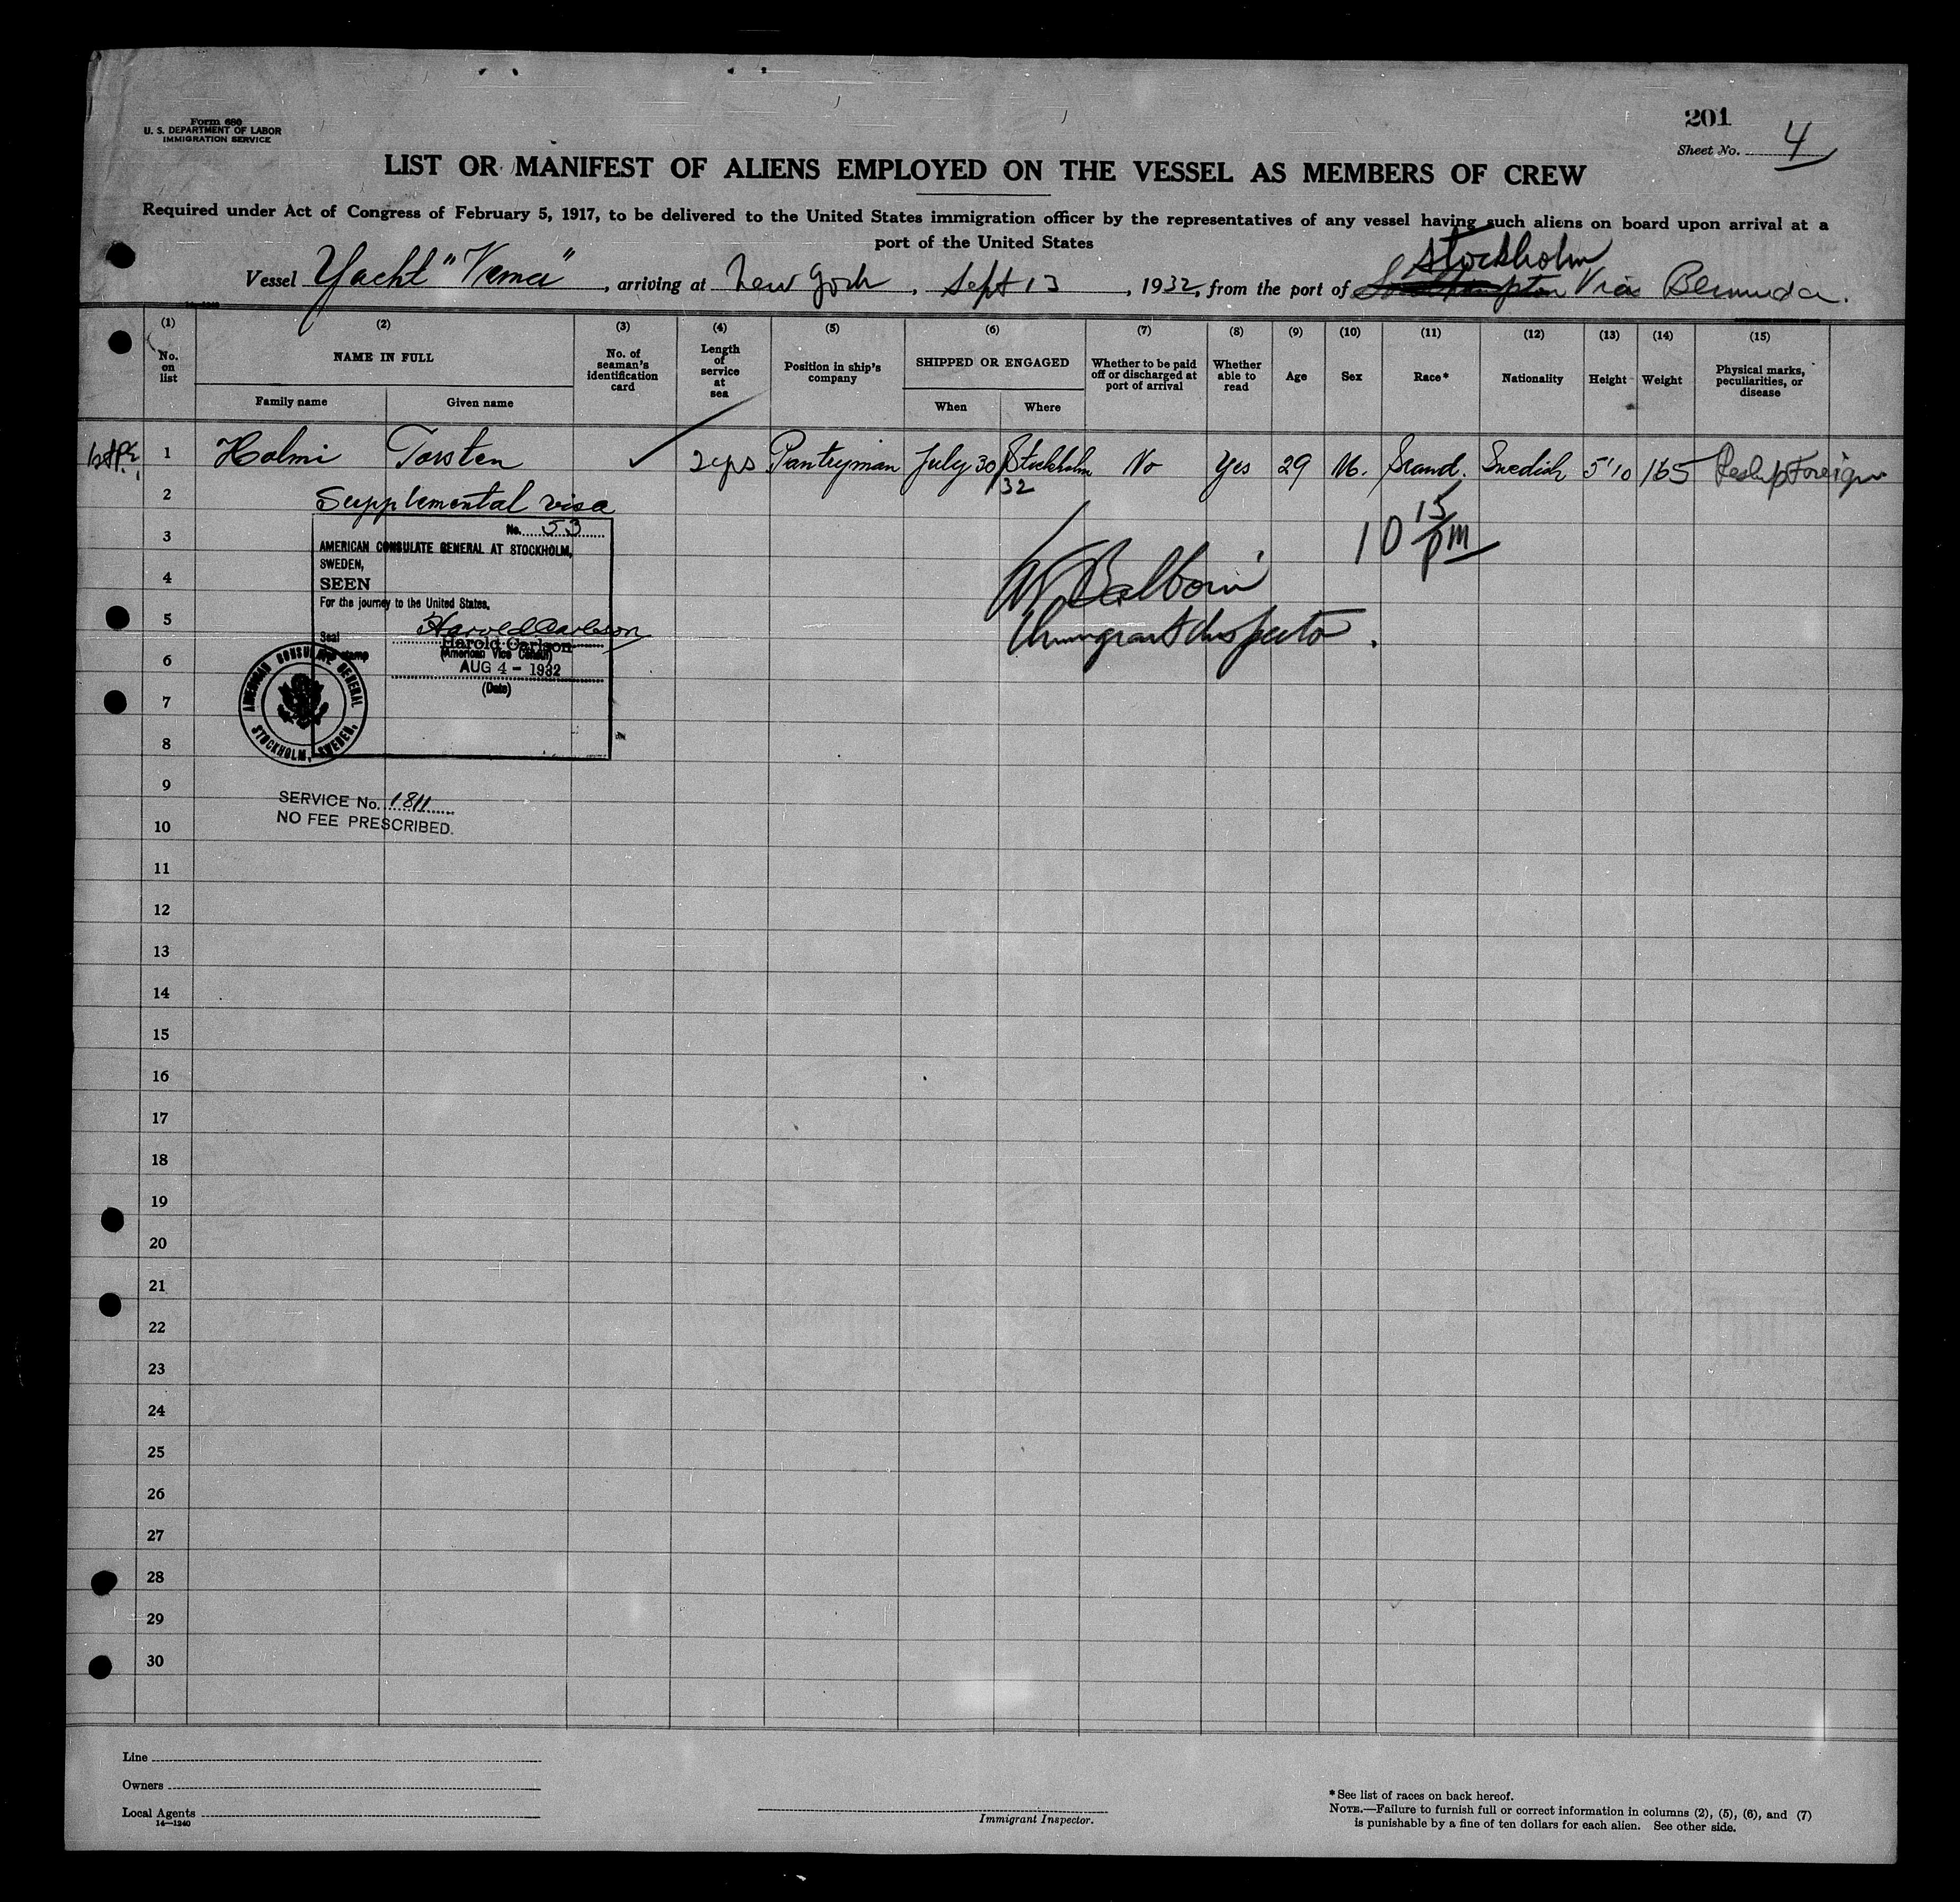 Form 680
U. S. DEPARTMENT OF LABOR
IMMIGRATION SERVICE
201
Sheet No. 4
LIST OR MANIFEST OF ALIENS EMPLOYED ON THE VESSEL AS MEMBERS OF CREW
Required under Act of Congress of February 5, 1917, to be delivered to the United States immigration officer by the representatives of any vessel having such aliens on board upon arrival at a
port of the United States
Stockholm
Vessel Yacht "Vema", arriving at New York, Sept 13, 1932, from the port of Southampton Via Bermuda.
(1) (2) (3) (4) (5) (6) (7) (8) (9) (10) (11) (12) (13) (14) (15)
No. on list NAME IN FULL No. of seaman's identification card Length of service at sea Position in ship's company SHIPPED OR ENGAGED Whether to be paid off or discharged at port of arrival Whether able to read Age Sex Race* Nationality Height Weight Physical marks, peculiarities, or disease
Family name Given name When Where
1 Holmi Torsten 2 yrs Pantryman July 30 Stockholm No Yes 29 M. Scand. Swedish 5'10 165 Foreign
32
2 Supplemental visa
No. 53
3 AMERICAN CONSULATE GENERAL AT STOCKHOLM,
SWEDEN,
10 15 pm
4 SEEN
For the journey to the United States.
5 Harold Carlson
Immigrant Inspector.
Seal
Harold Carlson
(American Vice Consul)
6 AUG 4 - 1932
(Date)
AMERICAN CONSULATE GENERAL STOCKHOLM, SWEDEN.
7
8
9
SERVICE No. 1811
NO FEE PRESCRIBED.
10
11
12
13
14
15
16
17
18
19
20
21
22
23
24
25
26
27
28
29
30
Line
Owners
Local Agents
14—1240
Immigrant Inspector.
*See list of races on back hereof.
NOTE.—Failure to furnish full or correct information in columns (2), (5), (6), and (7)
is punishable by a fine of ten dollars for each alien. See other side.